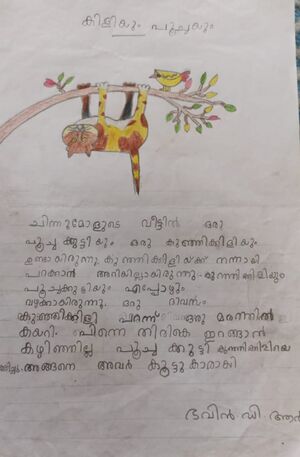 കിളിയും പൂച്ചയും
ചിന്നുമോളുടെ വീട്ടിൽ ഒരു
പൂച്ച കുട്ടിയും ഒരു കുഞ്ഞിക്കിളിയും
ഉണ്ടായിരുന്നു. കുഞ്ഞിക്കിളിയ്ക്ക് നന്നായി
പറക്കാൻ അറിയില്ലായിരുന്നു. കുഞ്ഞിക്കിളിയും
പൂച്ചക്കുട്ടിയും എപ്പോഴും
വഴക്കായിരുന്നു. ഒരു ദിവസം
കുഞ്ഞിക്കിളി പറന്ന് ഒരു മരത്തിൽ
കയറി. പിന്നെ തിരികെ ഇറങ്ങാൻ
കഴിഞ്ഞില്ല പൂച്ച ക്കുട്ടി കുഞ്ഞിക്കിളിയെ
അങ്ങനെ അവർ കൂട്ടുകാരാകി
ഭവിൻ. ഡി.